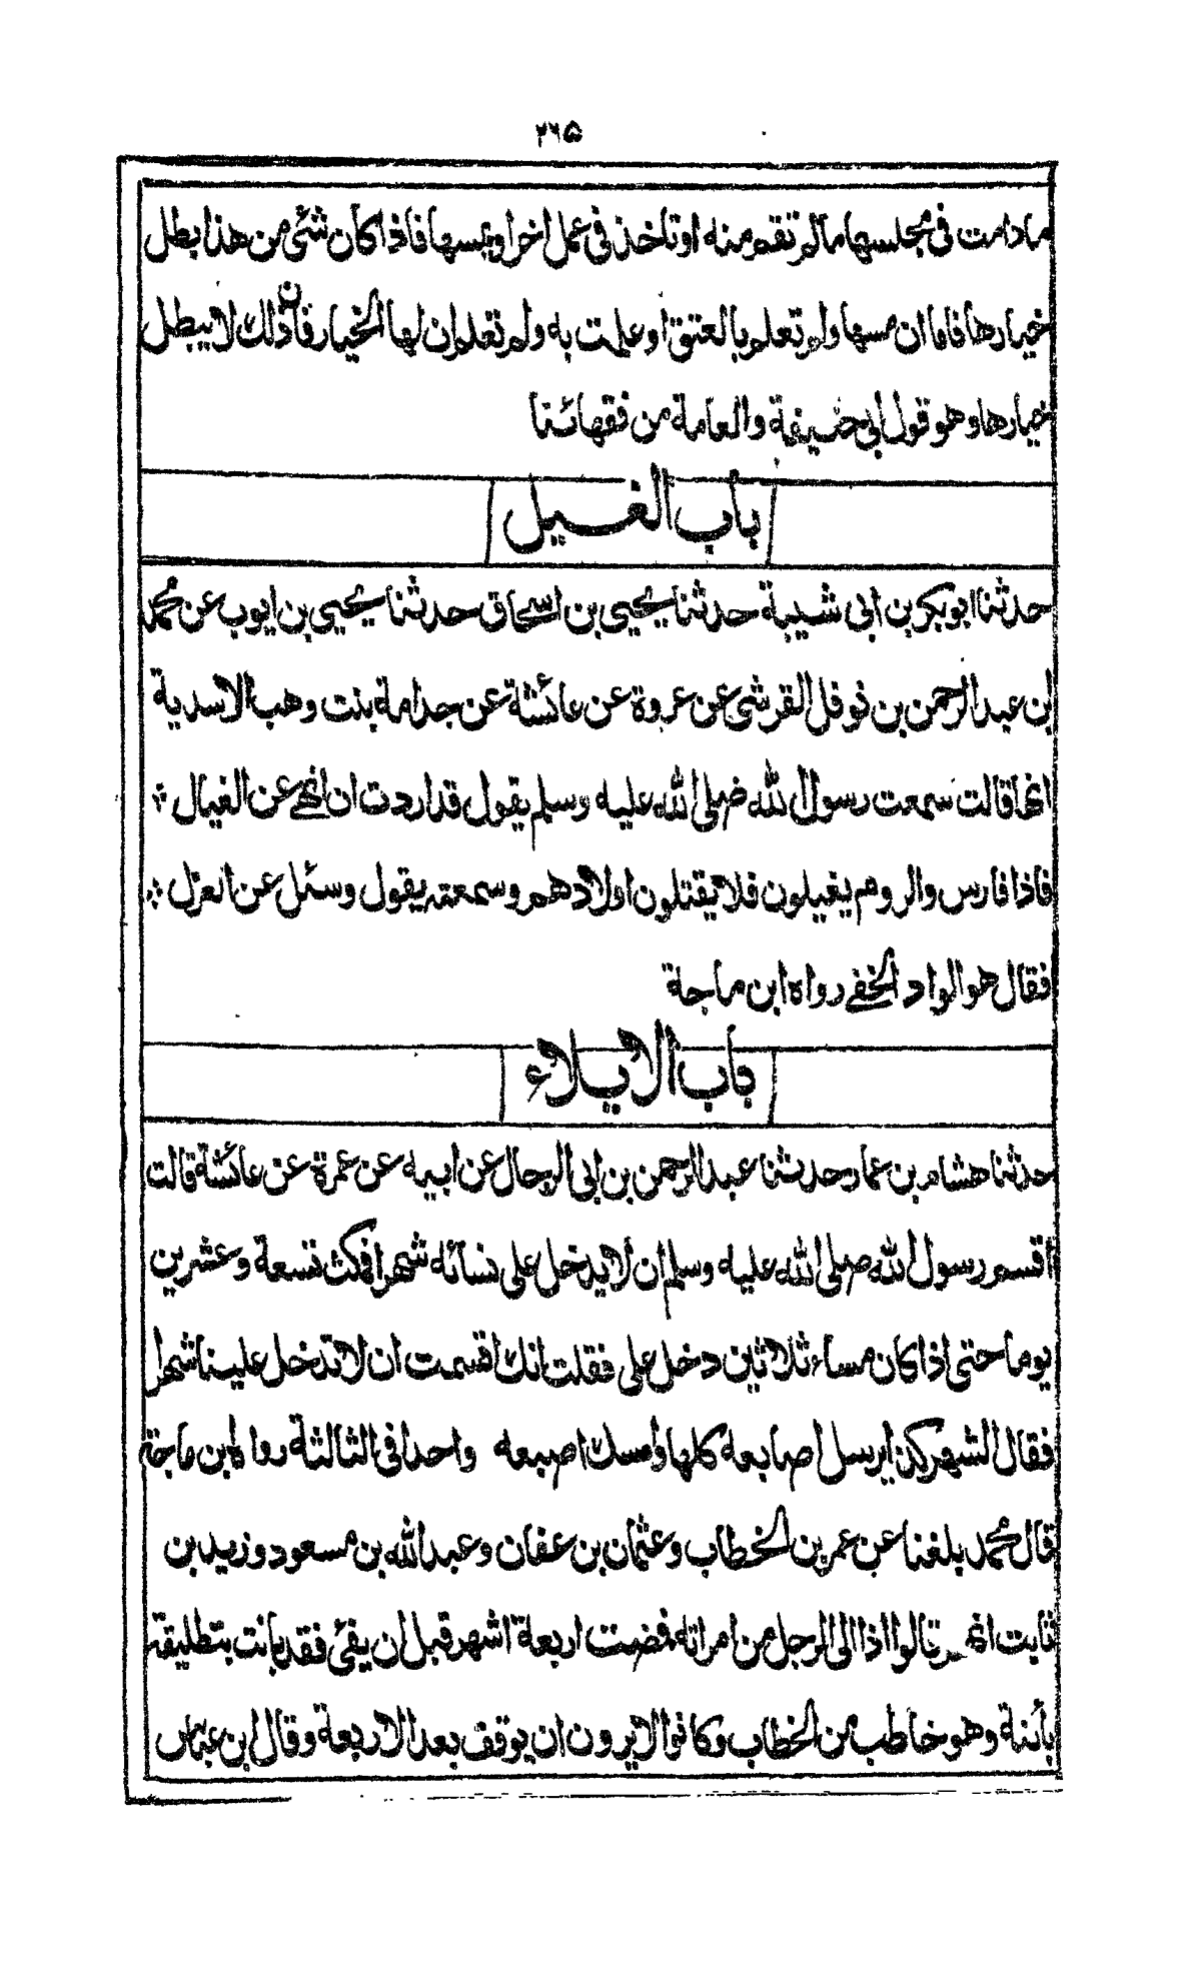 ٢٦٥
مادامت فى مجلسها مالم تقم منه اوتاخذ فى عمل اخر او يمسها فاذا كان شئ من هذا بطل
خيارها فاما ان مسها ولم تعلم بالعتق او علمت به ولم تعلم ان لها الخيار فان ذلك لا يبطل
خيارها وهو قول ابى حنيفة والعامة من فقهائنا
باب الغيل
حدثنا ابو بكر بن ابى شيبة حدثنا يحيى بن اسحاق حدثنا يحيى بن ايوب عن محمد
ابن عبد الرحمن بن نوفل القرشى عن عروة عن عائشة عن جدامة بنت وهب الاسدية
انها قالت سمعت رسول الله صلى الله عليه وسلم يقول قد اردت ان انهى عن الغيال
فاذا فارس والروم يغيلون فلا يقتلون اولادهم وسمعته يقول وسئل عن العزل
فقال هو الواد الخفى رواه ابن ماجة
باب الايلاء
حدثنا هشام بن عمار حدثنا عبد الرحمن بن ابى الرجال عن ابيه عن عمرة عن عائشة قالت
اقسم رسول الله صلى الله عليه وسلم ان لا يدخل على نسائه شهرا فمكث تسعة وعشرين
يوما حتى اذا كان مساء ثلاثين دخل على فقلت انك اقسمت ان لا تدخل علينا شهرا
فقال الشهر كذا يرسل اصابعه كلها وامسك اصبعه واحدا فى الثالثة رواه ابن ماجة
قال محمد بلغنا عن عمر بن الخطاب وعثمان بن عفان وعبد الله بن مسعود وزيد بن
ثابت انهم قالوا اذا الى الرجل من امراته فمضت اربعة اشهر قبل ان يفئ فقد بانت بتطليقة
بائنة وهو خاطب من الخطاب وكانوا لا يرون ان يوقف بعد الاربعة وقال ابن عباس